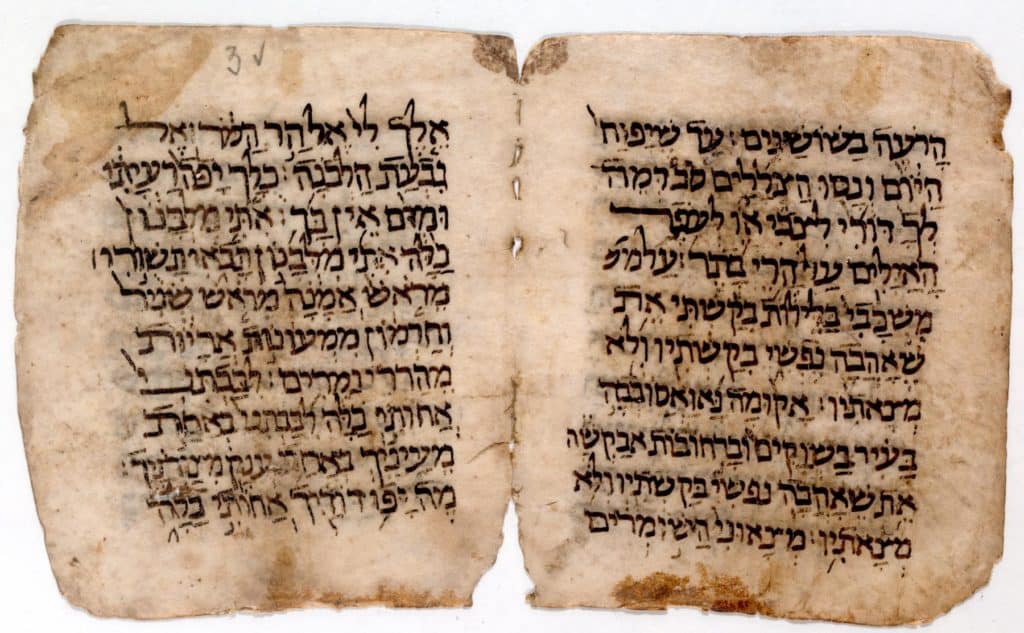 הרעה בשושנים: עד שיפוח
היום ונסו הצללים סב דמה
לך דודי לצבי או לעפר
האילים על הרי בתר: על מש
משכבי בלילות בקשתי את
שאהבה נפשי בקשתיו ולא
מצאתיו: אקומה נא ואסובבה
בעיר בשוקים וברחובות אבקשה
את שאהבה נפשי בקשתיו ולא
מצאתיו: מצאוני השומרים
3 v
אלך לי אל הר המור אל
גבעת הלבנה: כלך יפה רעיתי
ומום אין בך: אתי מלבנון
כלה אתי מלבנון תבאי תשורי
מראש אמנה מראש שניר
וחרמון ממעונות אריות
מהררי נמרים: לבבתני
אחותי כלה לבבתני באחת
מעיניך באחד ענק מצורניך:
מה יפו דודיך אחותי כלה